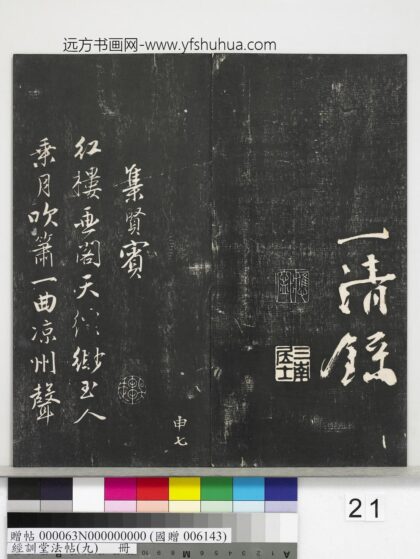 远方书画网-www.yfshuhua.com
一清
申七
集賢賓
紅樓画閣天縹緲玉人
乘月吹簫一曲涼州聲
21
贈帖 000063N000000000 (國贈 006143)
經訓堂法帖(九) 冊